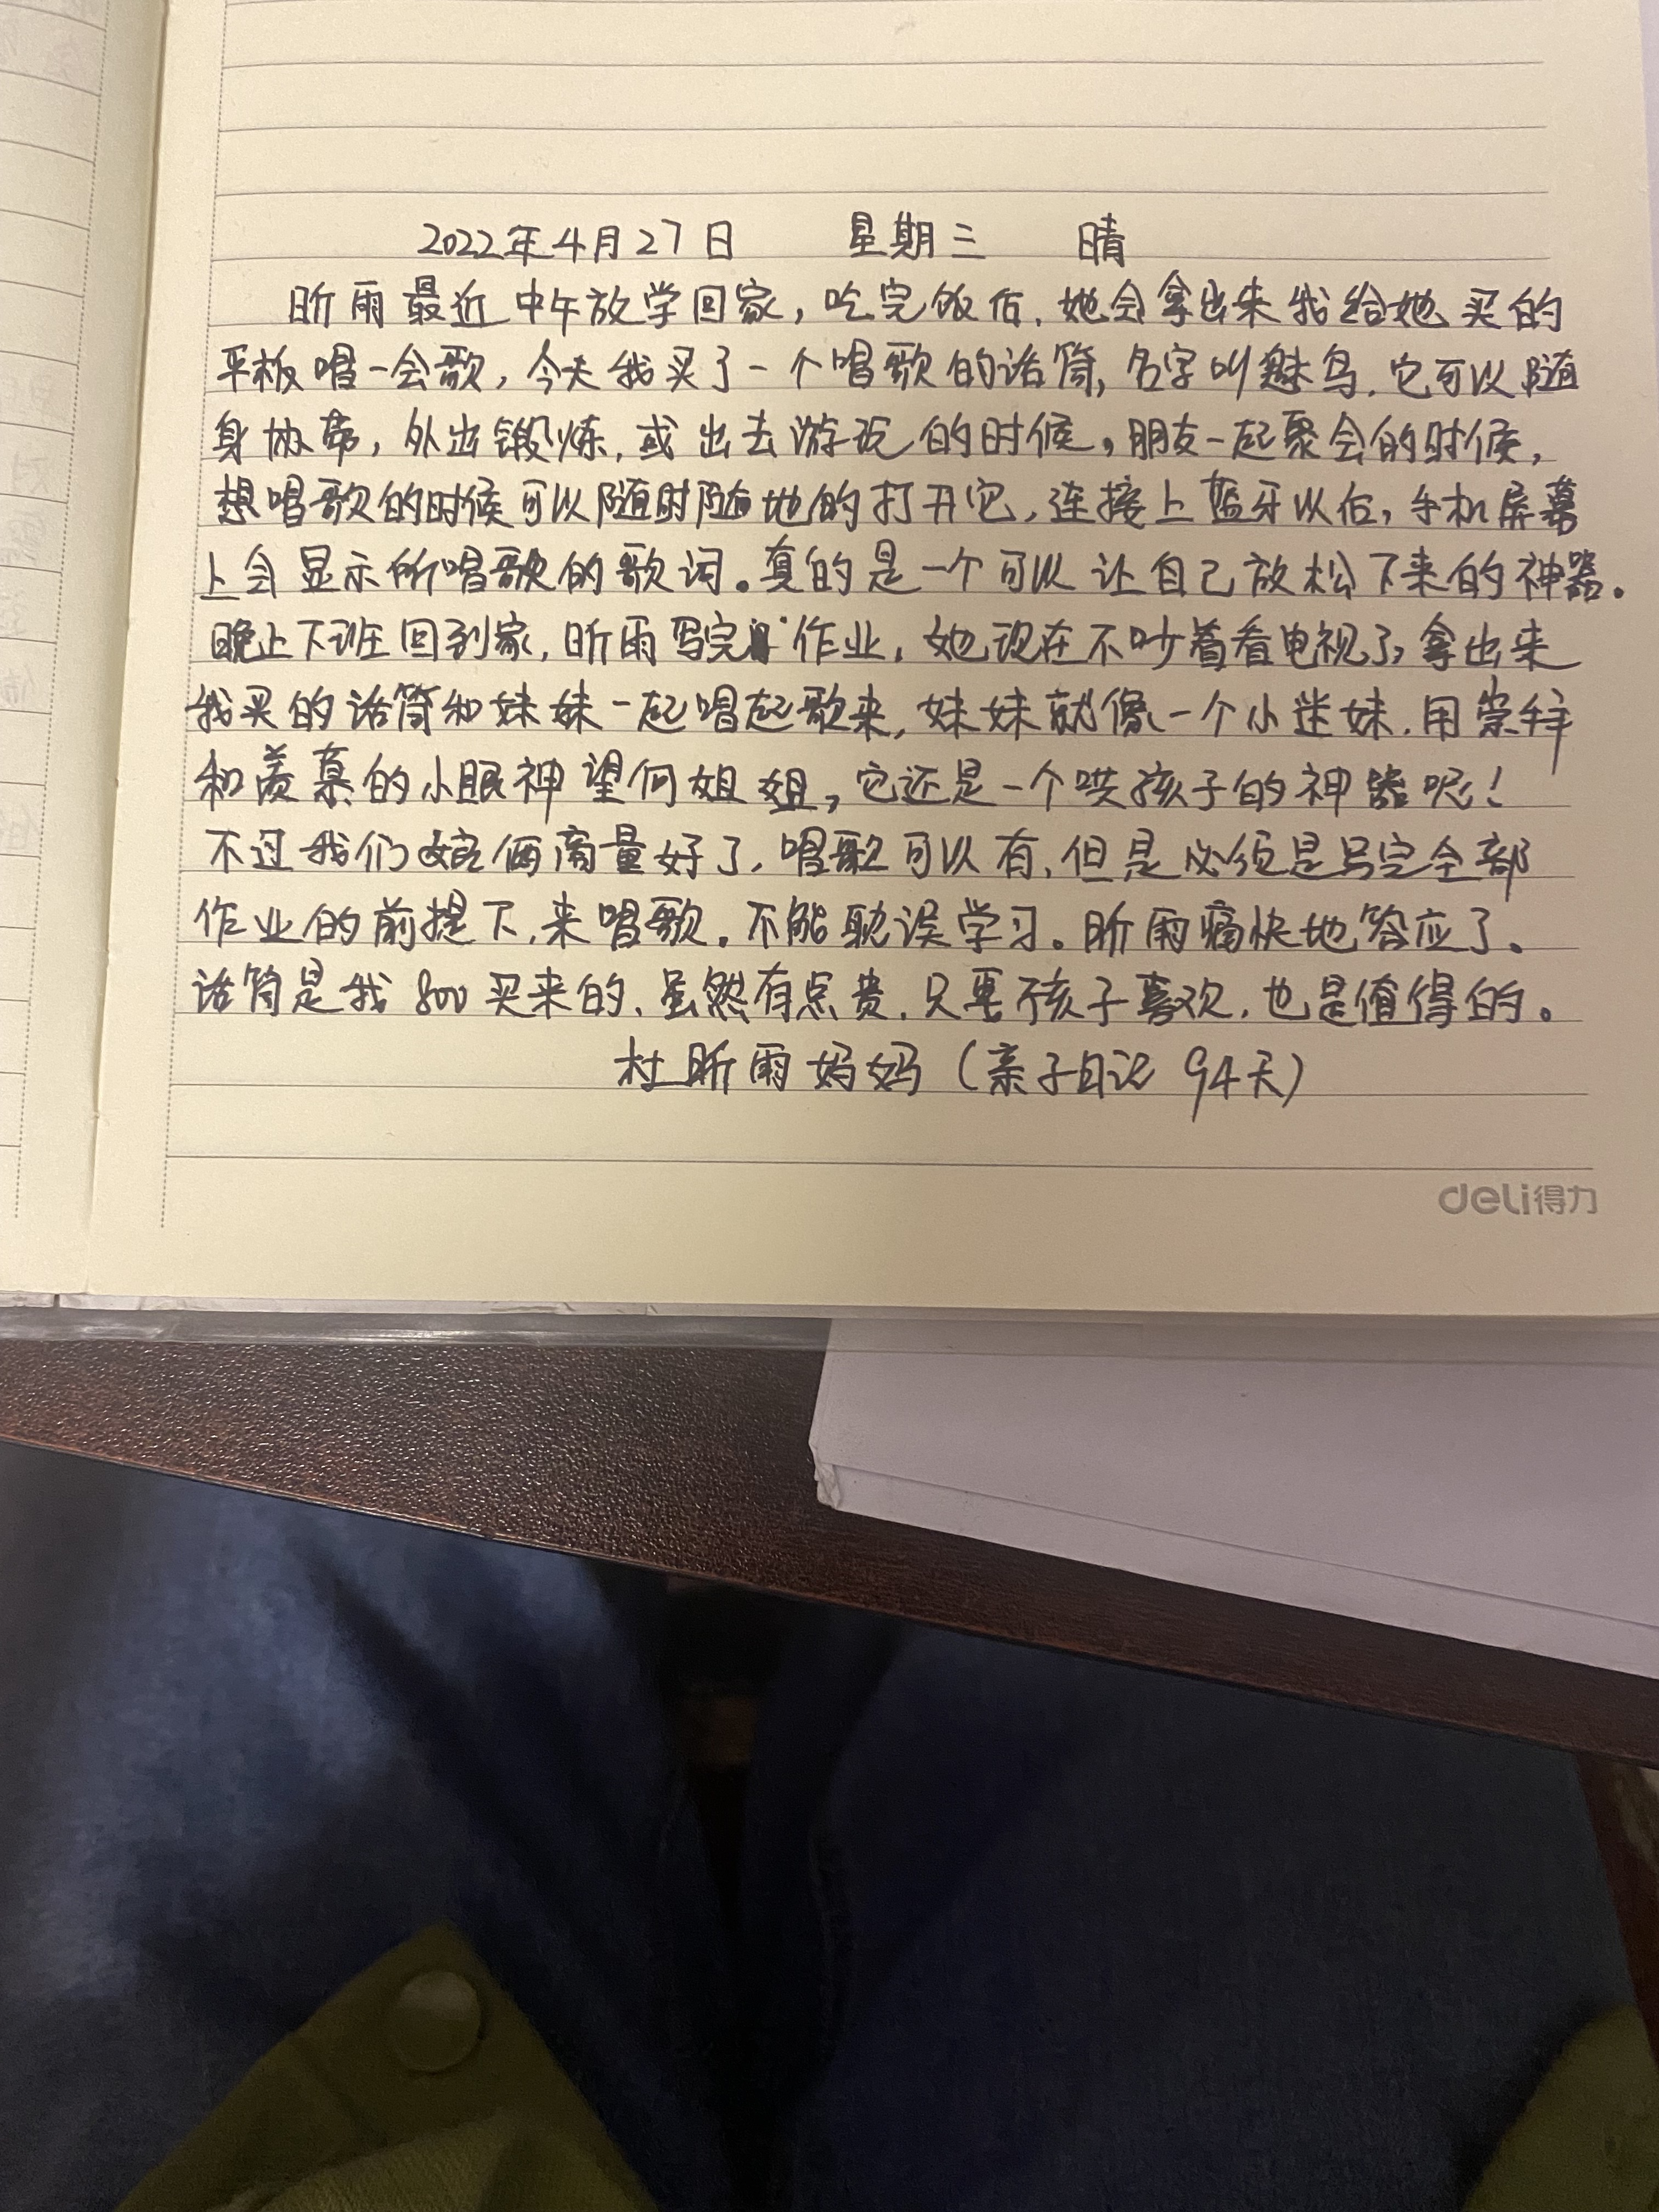 2022年4月27日 星期三 晴
昕雨最近中午放学回家,吃完饭后,她会拿出来我给她买的
平板唱一会歌,今天我买了一个唱歌的话筒,名字叫魅鸟,它可以随
身协带,外出锻炼,或出去游玩的时候,朋友一起聚会的时候,
想唱歌的时候可以随时随地的打开它,连接上蓝牙以后,手机屏幕
上会显示所唱歌的歌词。真的是一个可以让自己放松下来的神器。
晚上下班回到家,昕雨写完作业,她现在不吵着看电视了,拿出来
我买的话筒和妹妹一起唱起歌来,妹妹就像一个小迷妹,用崇拜
和羡慕的小眼神望向姐姐,它还是一个哄孩子的神器呢!
不过我们娘俩商量好了,唱歌可以有,但是必须是写完全部
作业的前提下,来唱歌。不能耽误学习。昕雨痛快地答应了。
话筒是我800买来的,虽然有点贵,只要孩子喜欢,也是值得的。
杜昕雨妈妈(亲子日记94天)
deli得力